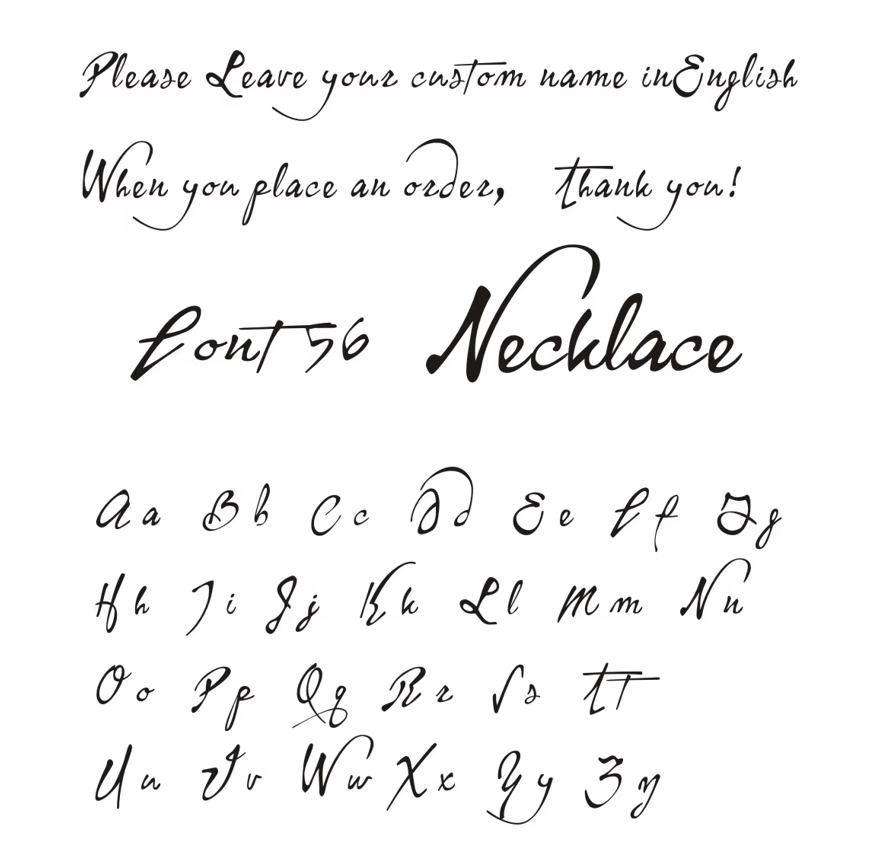 Please Leave your custom name inEnglish
When you place an order, thank you!
Font 56 Necklace
Aa Bb Cc Dd Ee Ff Gg
Hh Ii Jj Kk Ll Mm Nn
Oo Pp Qq Rr Ss Tt
Uu Vv Ww Xx Yy Zz